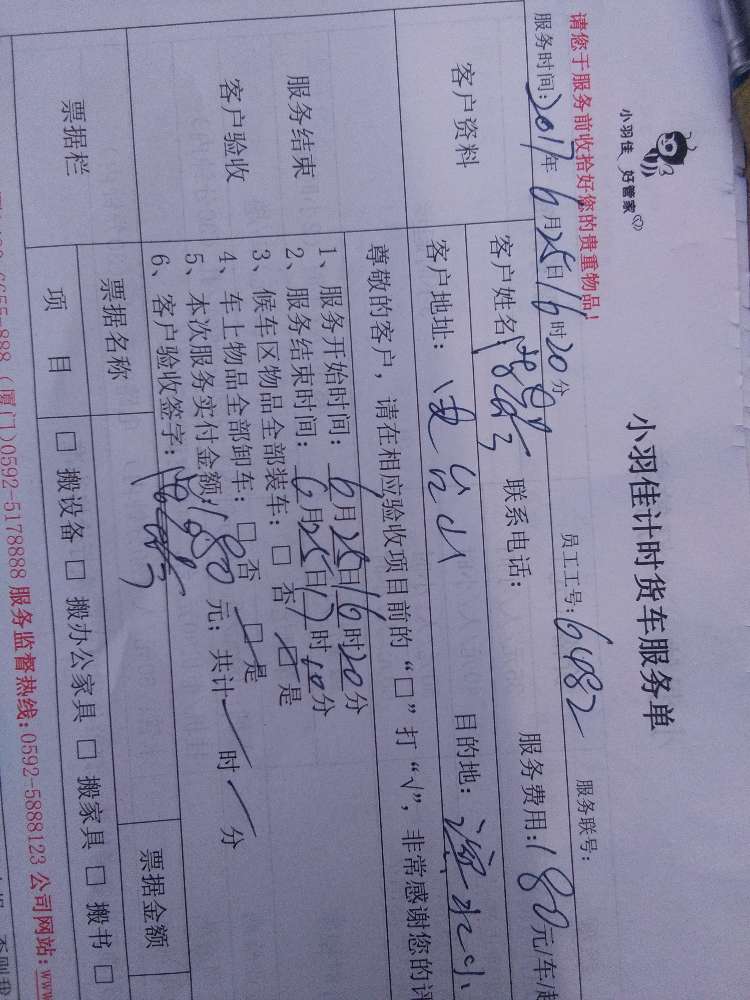 小羽佳 好管家
小羽佳计时货车服务单
请您于服务前收拾好您的贵重物品!
服务时间:2017年6月25日16时20分 员工工号:6482 服务联号:
客户资料
客户姓名: 联系电话: 服务费用:180元/车/起
客户地址: 目的地:
服务结束
客户验收
尊敬的客户，请在相应验收项目前的“□”打“√”，非常感谢您的评
1、服务开始时间:6月25日16时20分
2、服务结束时间:6月25日17时 分
3、候车区物品全部装车:□否 □是
4、车上物品全部卸车:□否 □是
5、本次服务实付金额:180元;共计 时 分
6、客户验收签字:
票据栏
票据名称 票据金额
项 目 □ 搬设备 □ 搬办公家具 □ 搬家具 □ 搬书 □
6655-888 (厦门)0592-5178888 服务监督热线:0592-5888123 公司网站:www